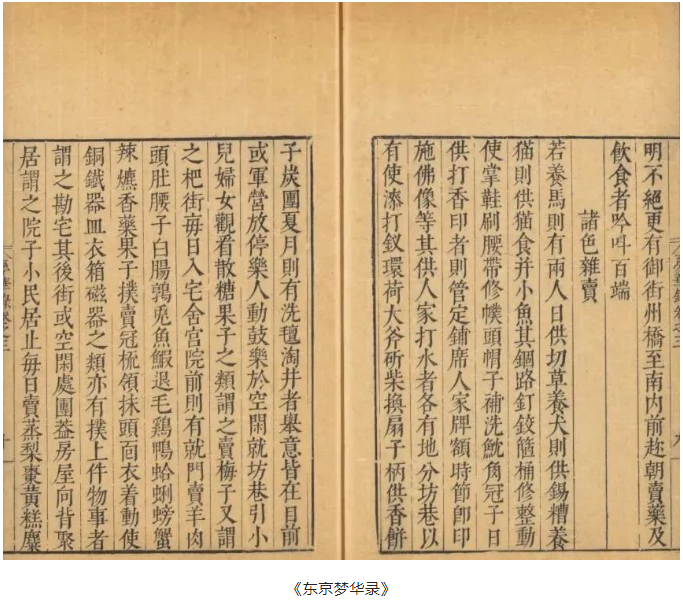 明不絕更有御街州橋至南内前趂朝賣藥及
飲食者吟呌百端
諸色雜賣
若養馬則有兩人日供切草養犬則供餳糟養
猫則供猫食并小魚其錮路釘鉸箍桶修整動
使掌鞋刷腰帶修幞頭帽子補洗魫角冠子日
供打香印者則管定鋪席人家牌額時節卽印
施佛像等其供人家打水者各有地分坊巷以
有使漆打釵環荷大斧斫柴換扇子柄供香餅
子炭團夏月則有洗氊淘井者舉意皆在目前
或軍營放停樂人動鼓樂於空閑就坊巷引小
兒婦女觀看散糖果子之類謂之賣梅子又謂
之杷街每日入宅舍宫院前則有就門賣羊肉
頭肚腰子白腸鶉兎魚鰕退毛鷄鴨蛤蜊螃蟹
辣爊香藥果子撲賣冠梳領抹頭面衣着動使
銅鐵器皿衣箱磁器之類亦有撲上件物事者
謂之勘宅其後街或空閑處團葢房屋向背聚
居謂之院子小民居止每日賣蒸梨棗黄糕麋
《东京梦华录》